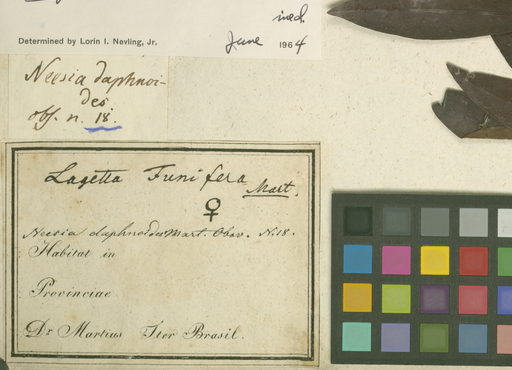 ined.
Determined by Lorin I. Nevling, Jr. June 1964
Neesia daphnoi-
des
obs. n. 18.
Lagetta Funifera
Mart.
♀
Neesia daphnoides Mart. Obsv. N. 18.
Habitat in
Provinciae
Dr Martius Iter Brasil.